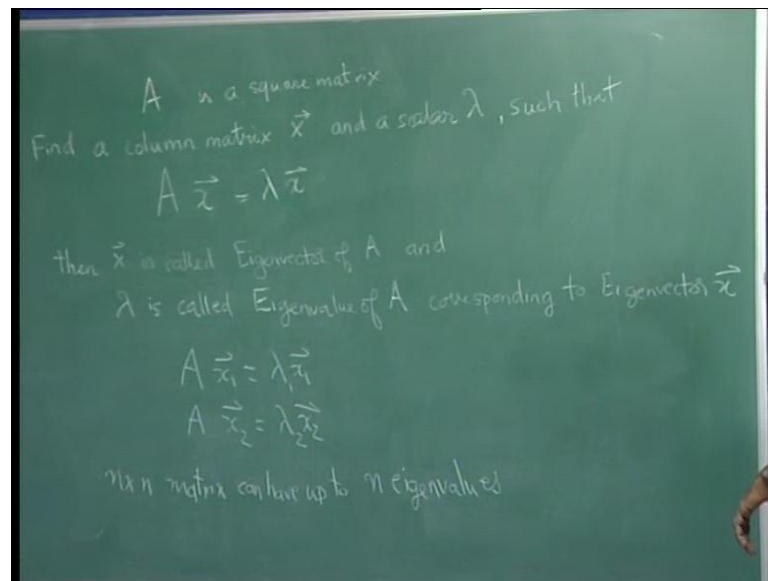 A is a square matrix
Find a column matrix x⃗ and a scalar λ, such that
A x⃗ = λ x⃗
then x⃗ is called Eigenvector of A and
λ is called Eigenvalue of A corresponding to Eigenvector x⃗
A x⃗₁ = λ₁ x⃗₁
A x⃗₂ = λ₂ x⃗₂
n x n matrix can have up to n eigenvalues